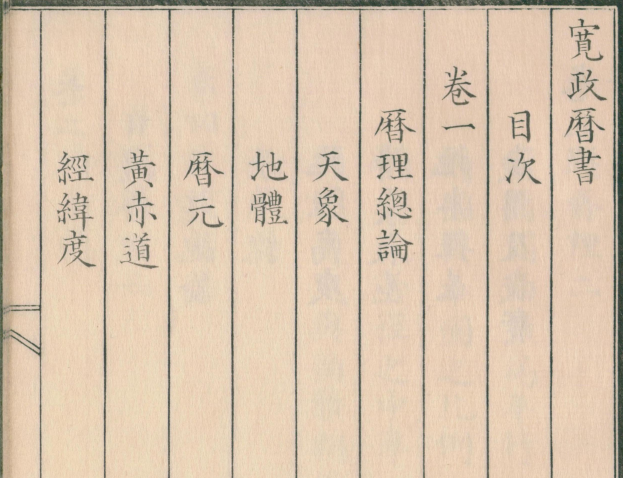 寛政暦書
目次
卷一
暦理總論
天象
地體
暦元
黃赤道
經緯度